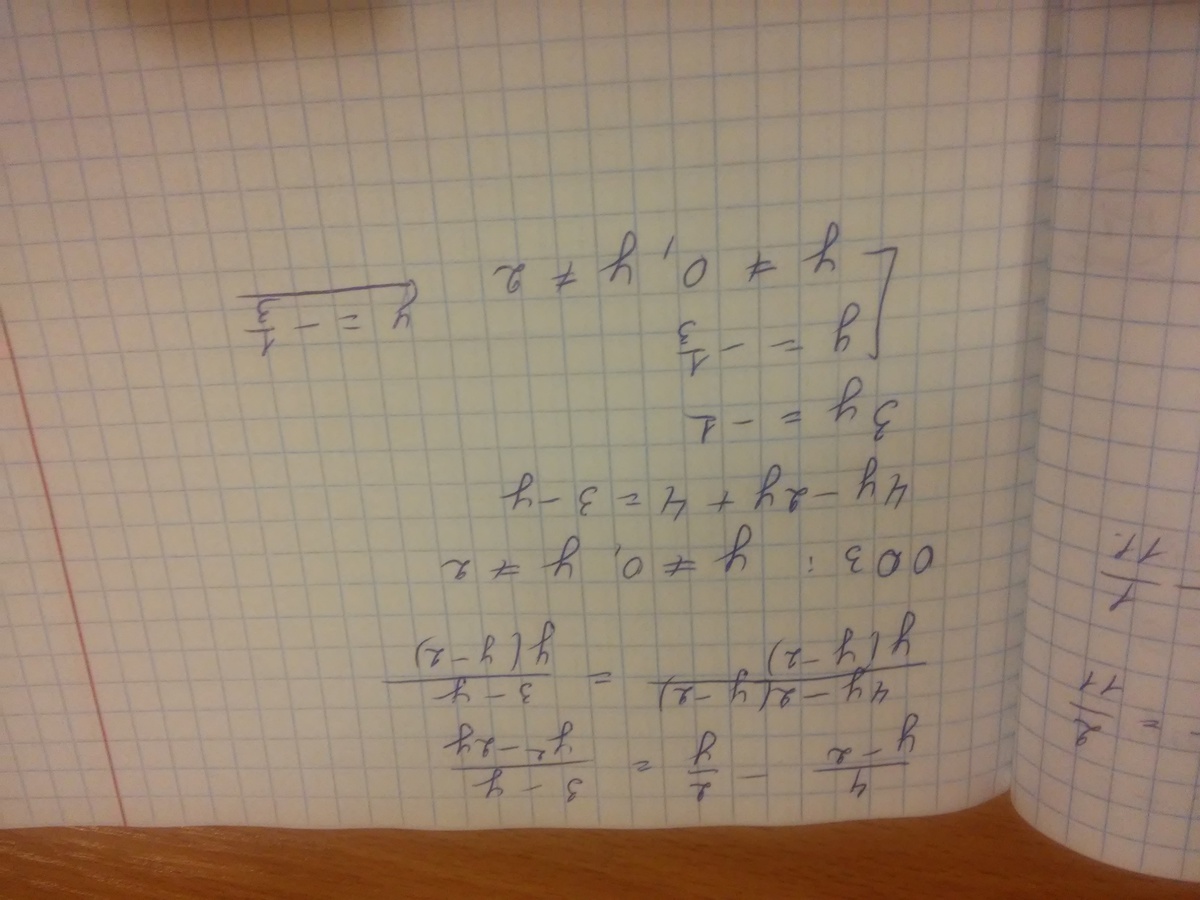 4/(y-2) - 2/y = (3-y)/(y²-2y)
(4y-2(y-2))/(y(y-2)) = (3-y)/(y(y-2))
ОДЗ: y ≠ 0, y ≠ 2
4y - 2y + 4 = 3 - y
3y = -1
[ y = -1/3
y ≠ 0, y ≠ 2
y = -1/3
= 2/11
- 1/11.